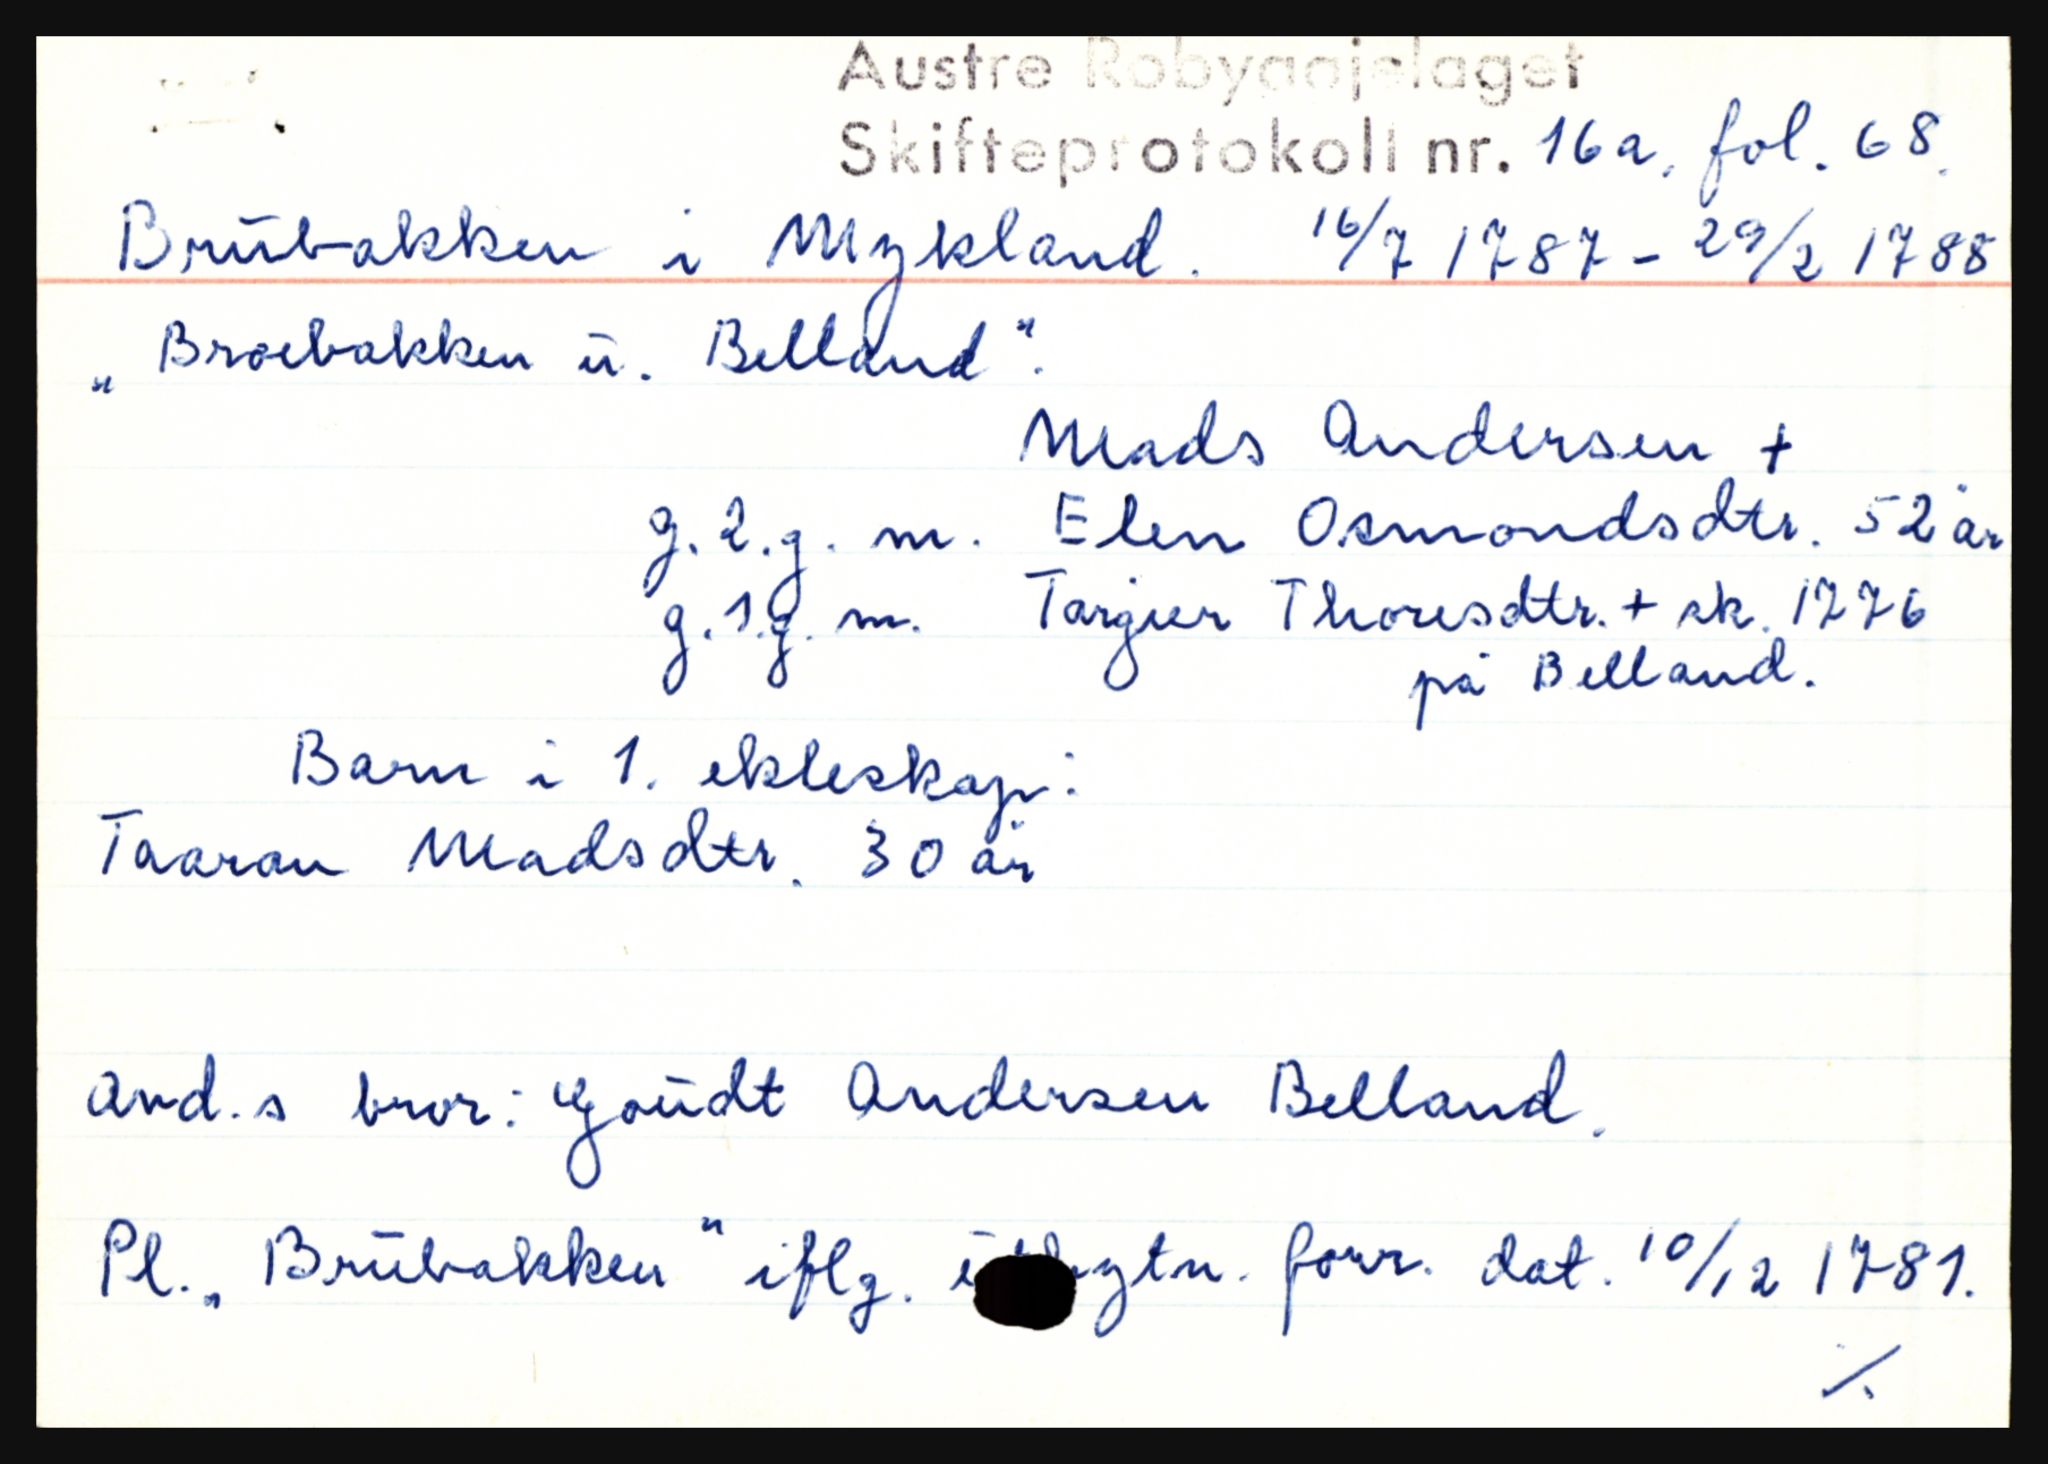 Austre Robyggjelaget
Skifteprotokoll nr. 16a, fol. 68.
Brubakken i Mykland. 16/7 1787 - 29/2 1788
„Broebakken u. Belland".
Mads Andersen +
g. 2. g. m. Elen Osmondsdtr. 52 år
g. 1. g. m. Targier Thoresdtr. + sk. 1776
på Belland.
Barn i 1. ekteskap:
Taaran Madsdtr. 30 år
avd.s bror: Goudt Andersen Belland.
Pl. „Brubakken" iflg. forr. dat. 10/12 1781.
./.